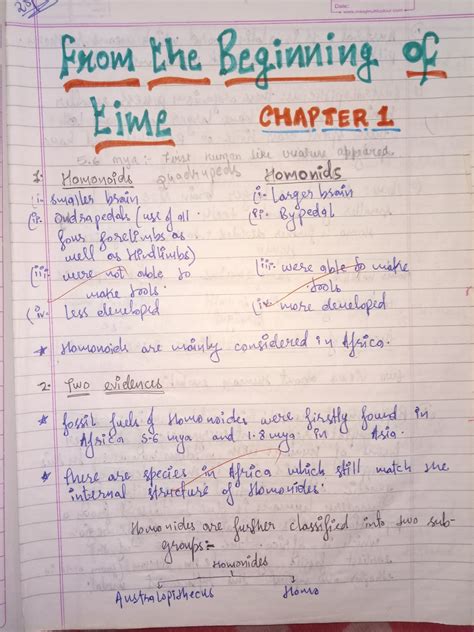 28
Date:
From the Beginning of
time CHAPTER 1
5.6 mya:- first human like creature appeared
1. Homonoids quadrupeds Homonids
(i- smaller brain (i- larger brain
(ii- Quadrapedals (use of all (ii- Bypedal
four forelimbs as
well as hindlimbs)
(iii- were not able to (iii- were able to make
make tools tools.
(iv- Less developed (iv- more developed
* Homonoids are mainly considered in Africa.
2. Two evidences
* fossil fuels of Homonoides were firstly found in
Africa 5.6 mya and 1.8 mya in Asia.
* there are species in Africa which still match the
internal structure of Homonides.
Homonides are further classified into two sub-
groups:-
Homonides
Australopithecus Homo